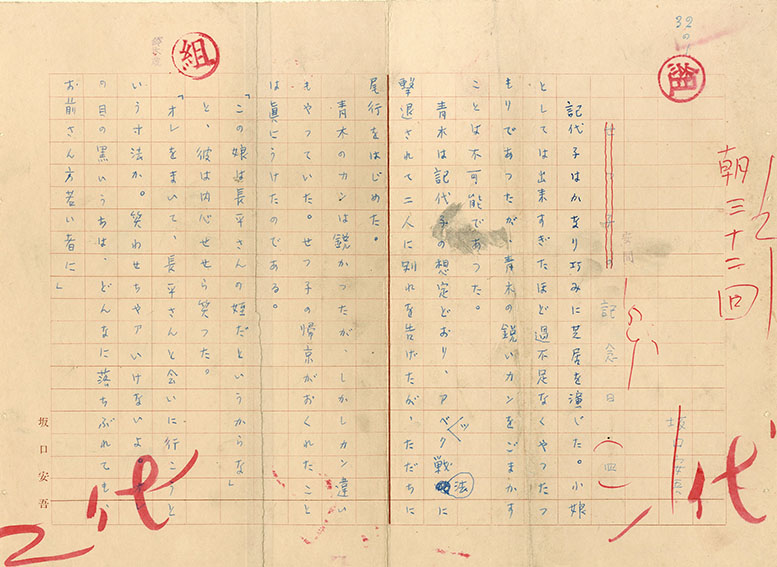 32の1
組
朝三十二回
記念日
(四)
坂口安吾
代
記代子はかなり巧みに芝居を演じた。小娘
としては出来すぎたほど過不足なくやったつ
もりであったが、青木の鋭いカンをごまかす
ことは不可能であった。
青木は記代子の想定どおり、アベック戦法に
撃退されて二人に別れを告げたが、ただちに
尾行をはじめた。
青木のカンは鋭かったが、しかしカン違い
もやっていた。せつ子の帰京がおくれたこと
は眞にうけたのである。
「この娘は長平さんの姪だというからな」
と、彼は内心せせら笑った。
「オレをまいて、長平さんと会いに行こうと
いう寸法か。笑わせちゃアいけないよ。オレ
の目の黒いうちは、どんなに落ちぶれても、
お前さん方若い者に」
組
坂口安吾
代